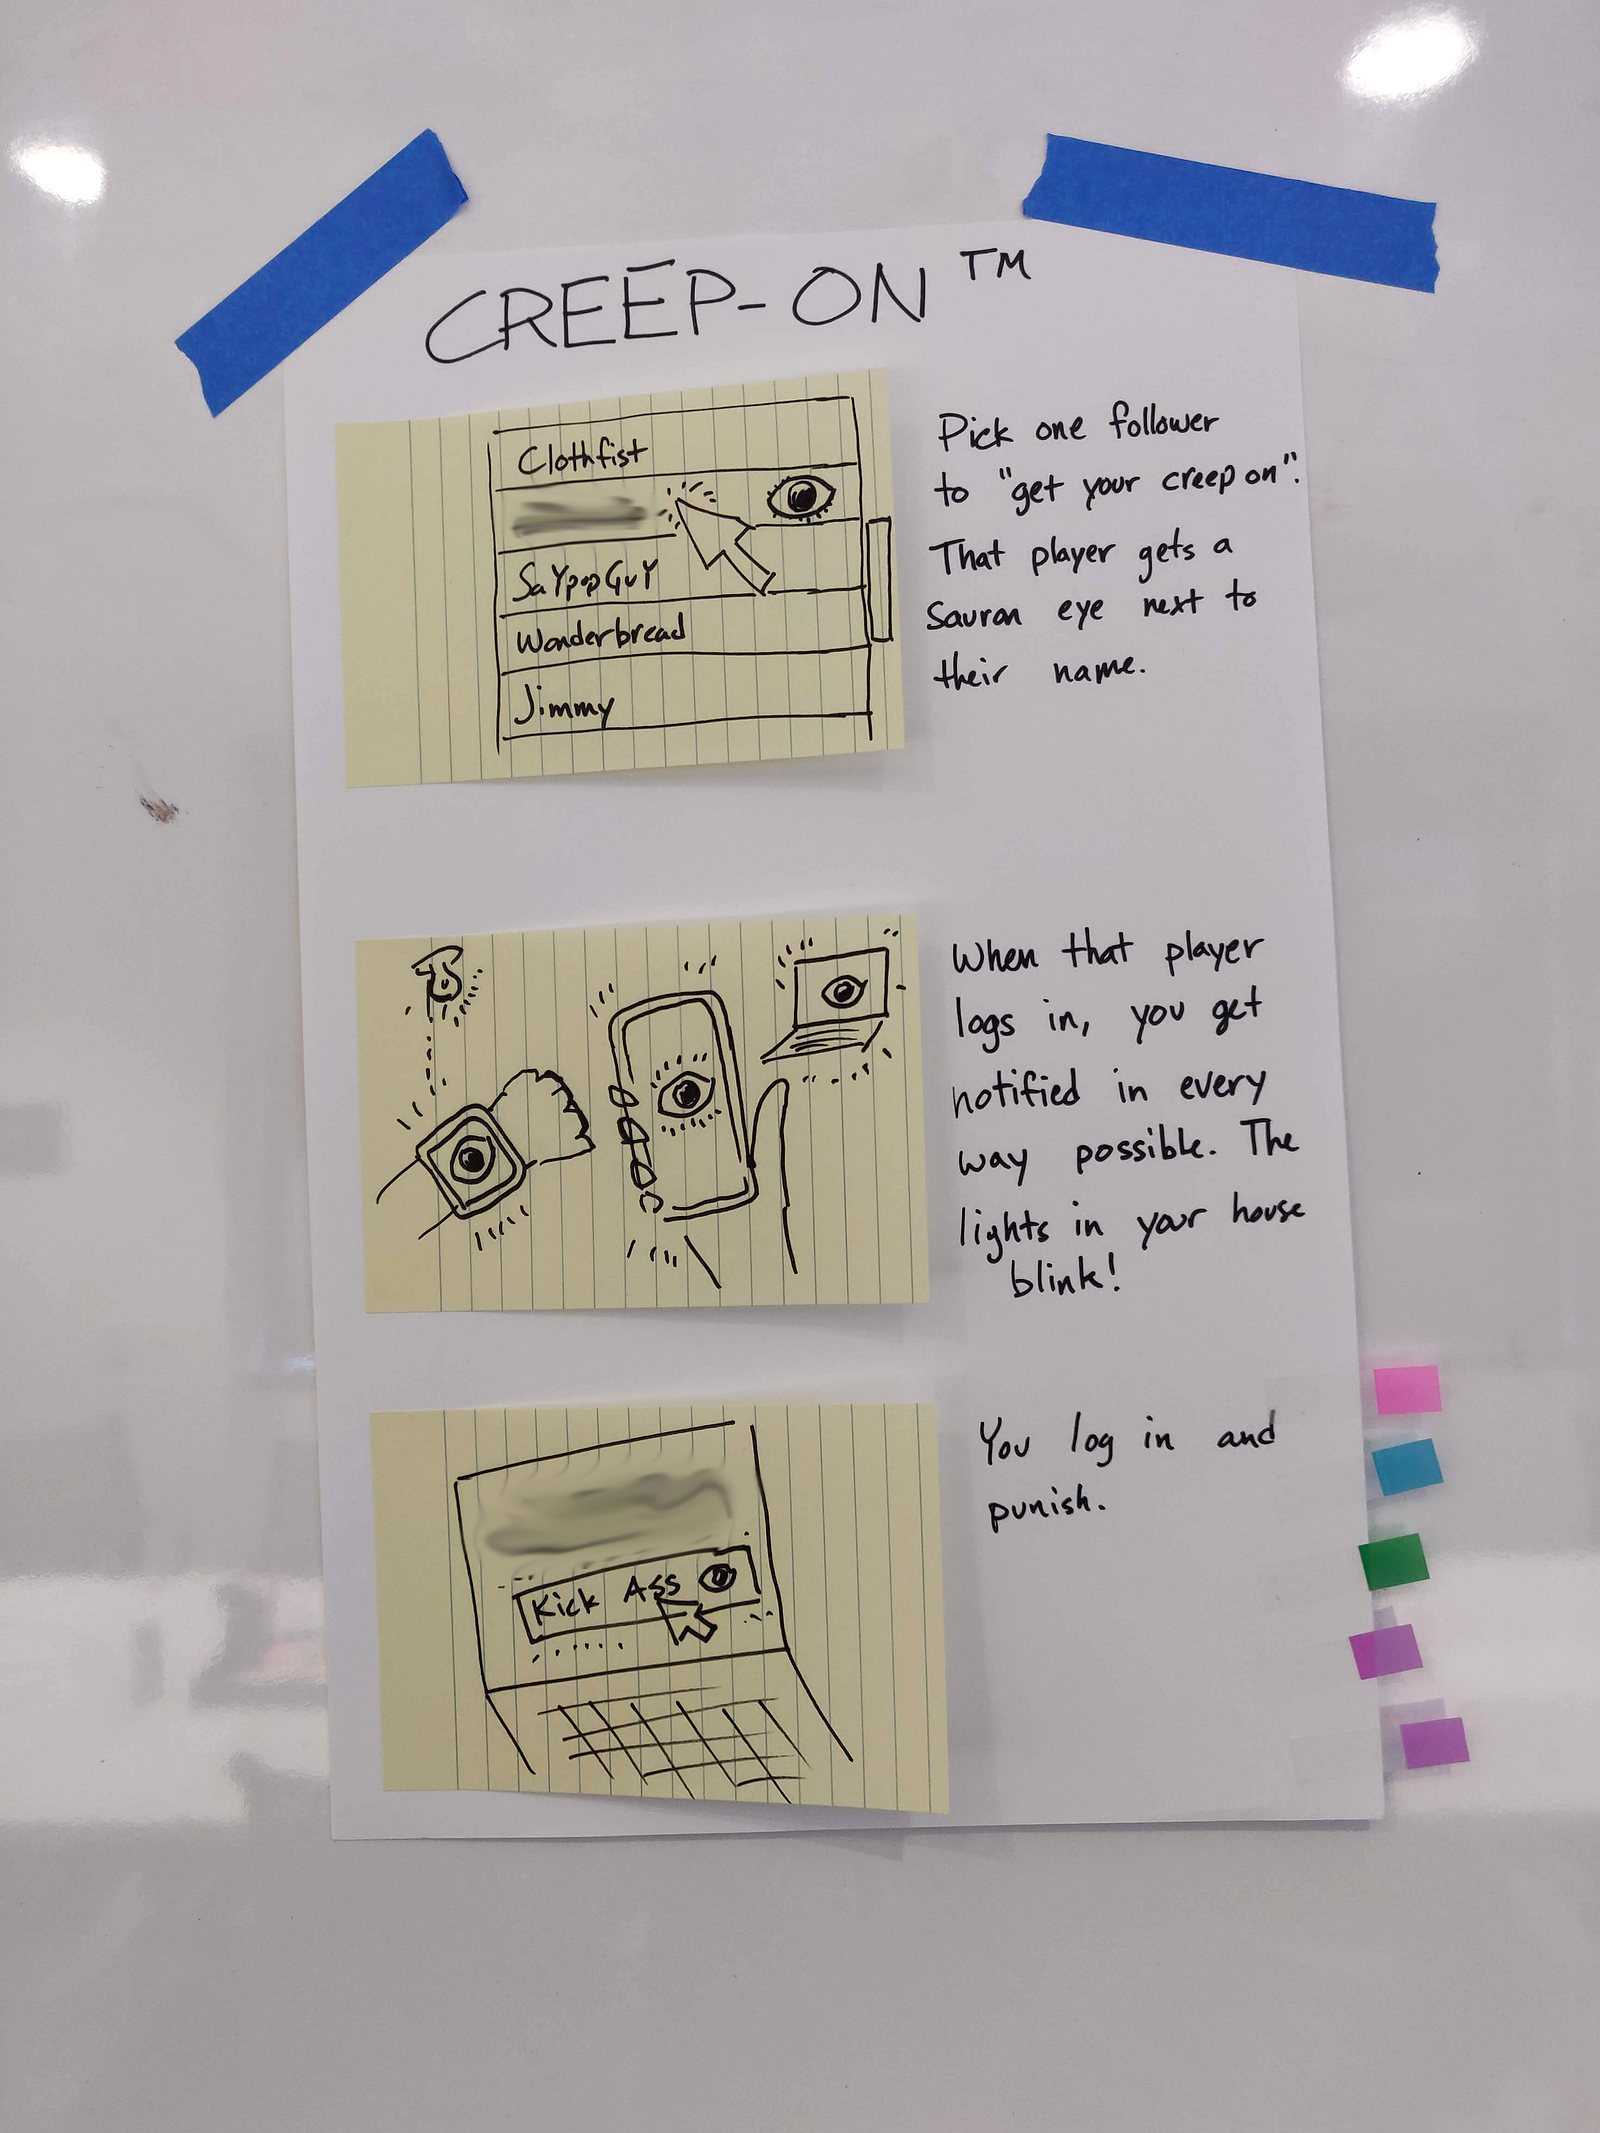 CREEP-ON™
Clothfist
SaYpopGuY
Wonderbread
Jimmy
Pick one follower
to "get your creep on".
That player gets a
Sauron eye next to
their name.
When that player
logs in, you get
notified in every
way possible. The
lights in your house
blink!
Kick Ass
You log in and
punish.